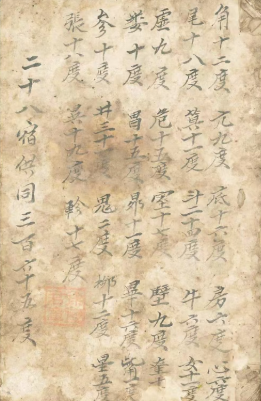 角十二度 亢九度 底十六度 房六度 心六度
尾十八度 箕十一度 斗二十四度 牛六度 女十一度
虚九度 危十五度 室十七度 壁九度
婁十度 胃十五度 昴十一度 畢十六度
参十度 井三十 度 鬼二度 柳十二度 星五度
張十八度 翼十九度 軫十七度
二十八宿供同三百六十五度